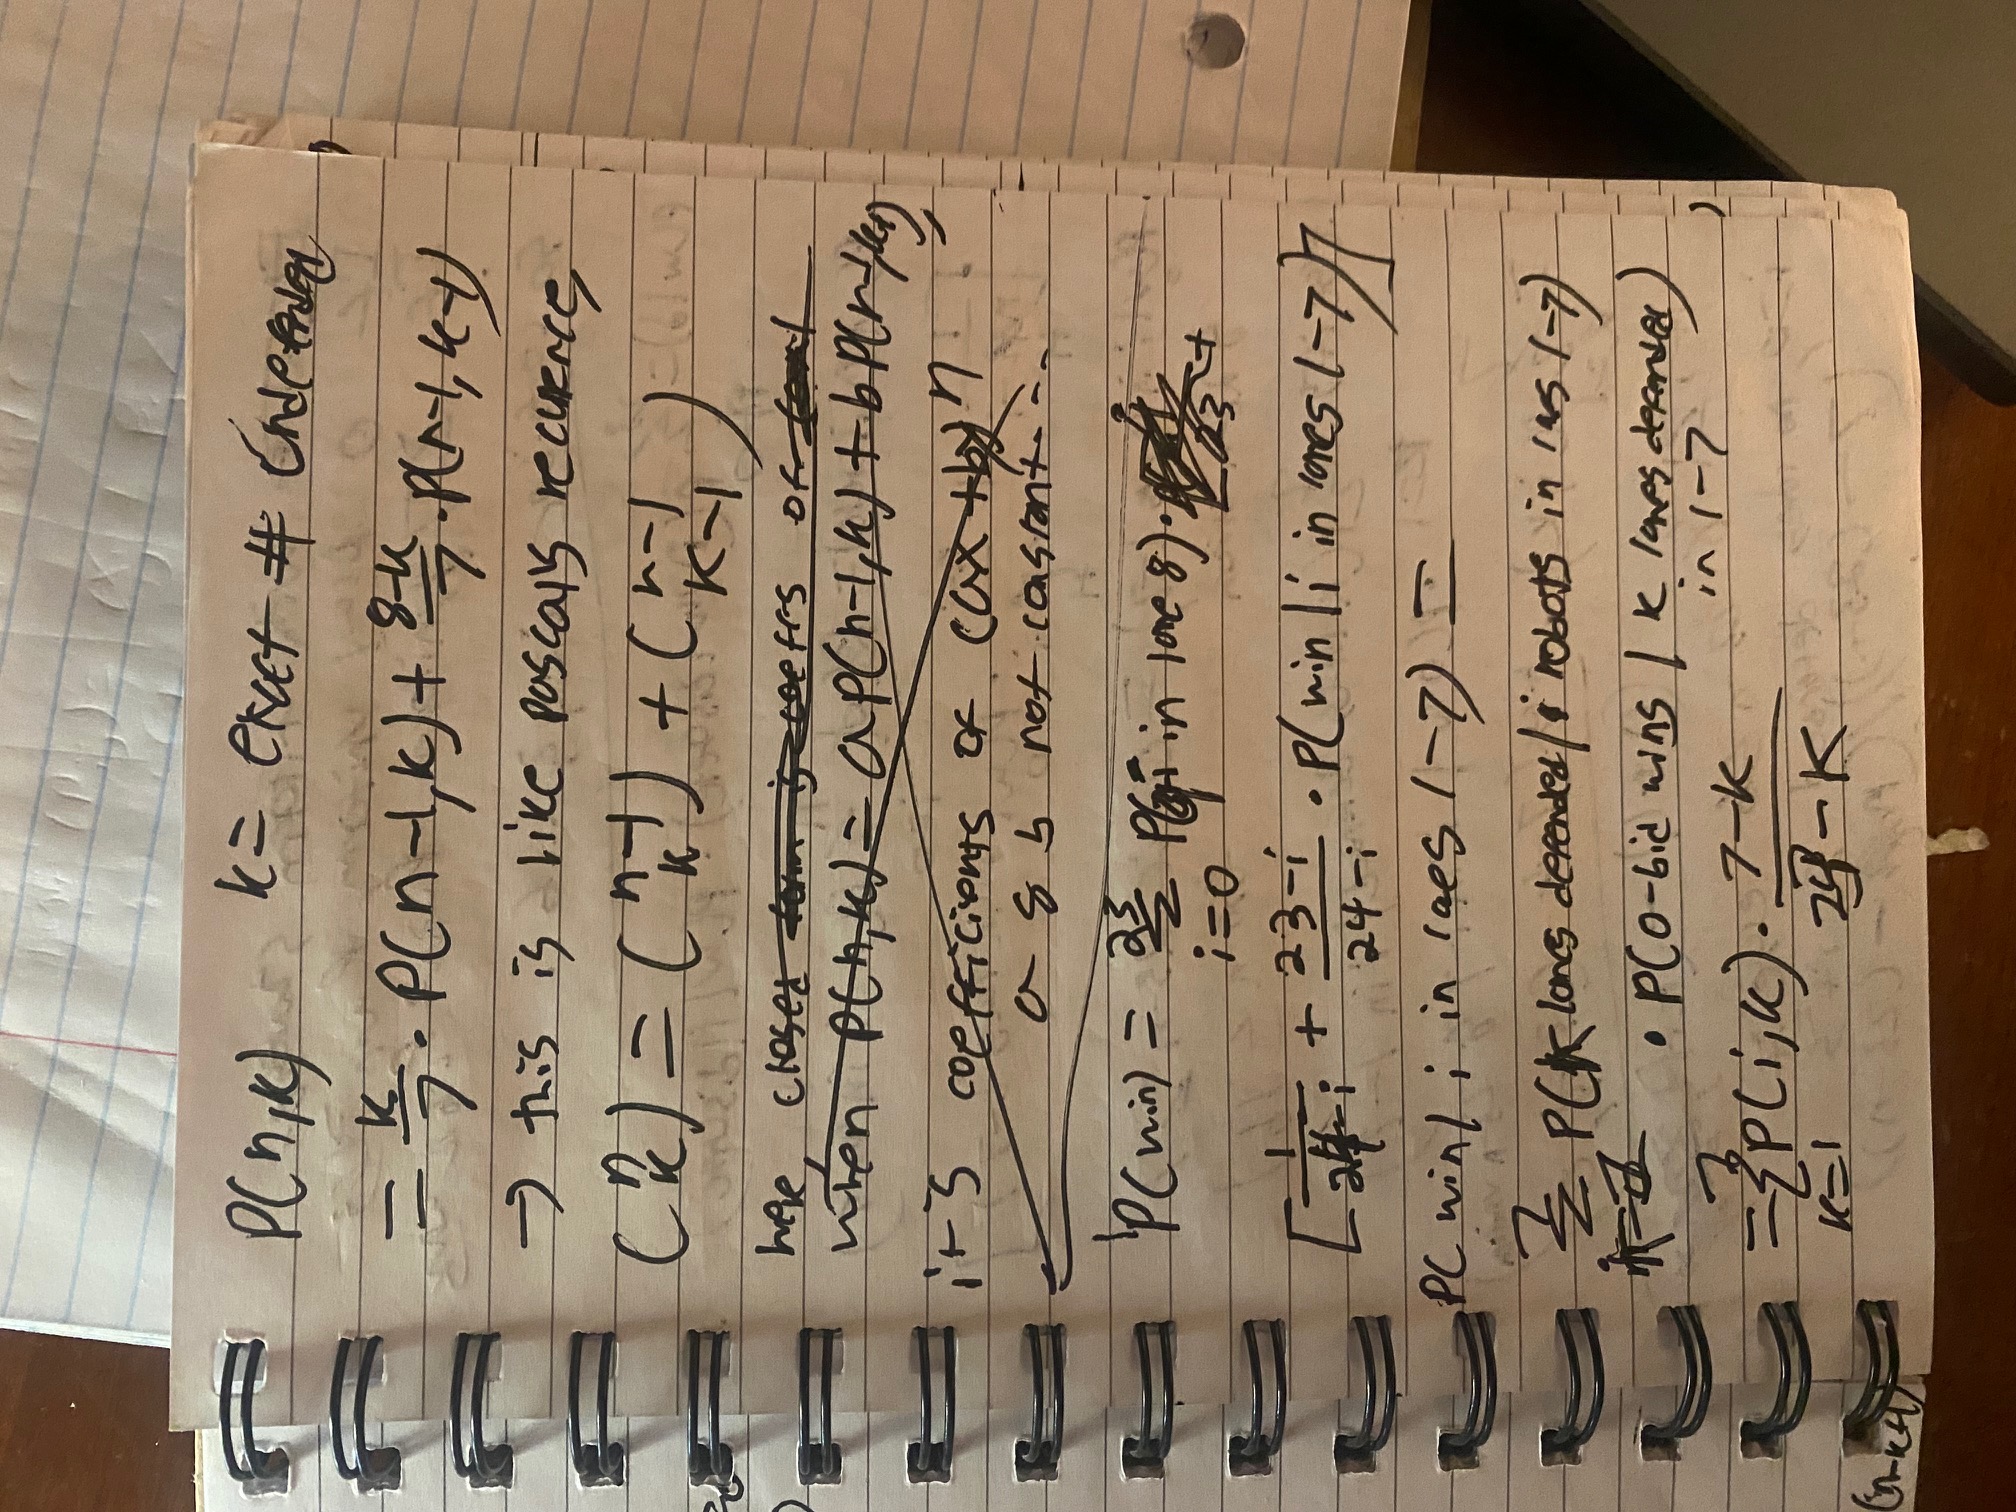 P(n,k) k = exact #
= k/7 · P(n-1,k) + 8-k/7 · P(n-1, k-1)
→ this is like pascal's recurence,
(n k) = (n-1 k) + (n-1 k-1)
here, closed form is coeffs of
when P(n,k) = a P(n-1,k) + b P(n-1,k-1),
it's coefficients of (ax + by)^n
a & b not constant...
P(win) = 23 Σ i=0 P(i in lane 8) ·
[1/24-i + 23-i/24-i · P(win | i in lanes 1-7)]
P(win | i in laes 1-7) =
7 Σ P(k lanes defended | i robots in lans 1-7)
· P(0-bid wins | k lanes defended)
in 1-7
= 7 Σ k=1 P(i,k) · 7-k/24-k
(n-k+1)